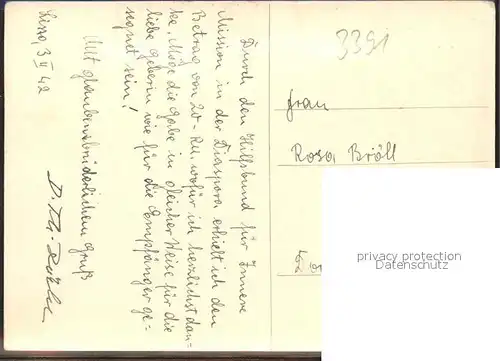 Durch den Hilfsbund für Innere
Mission in der Diaspora erhielt ich den
Betrag von 20.- RM. wofür ich herzlichst dan-
ke. Möge die Gabe in gleicher Weise für die
liebe Geberin wie für die Empfänger ge-
segnet sein!
Mit glaubensbrüderlichem Gruß
D. Th.
3 II 42
3391
Frau
Rosa Bröll
privacy protection
Datenschutz